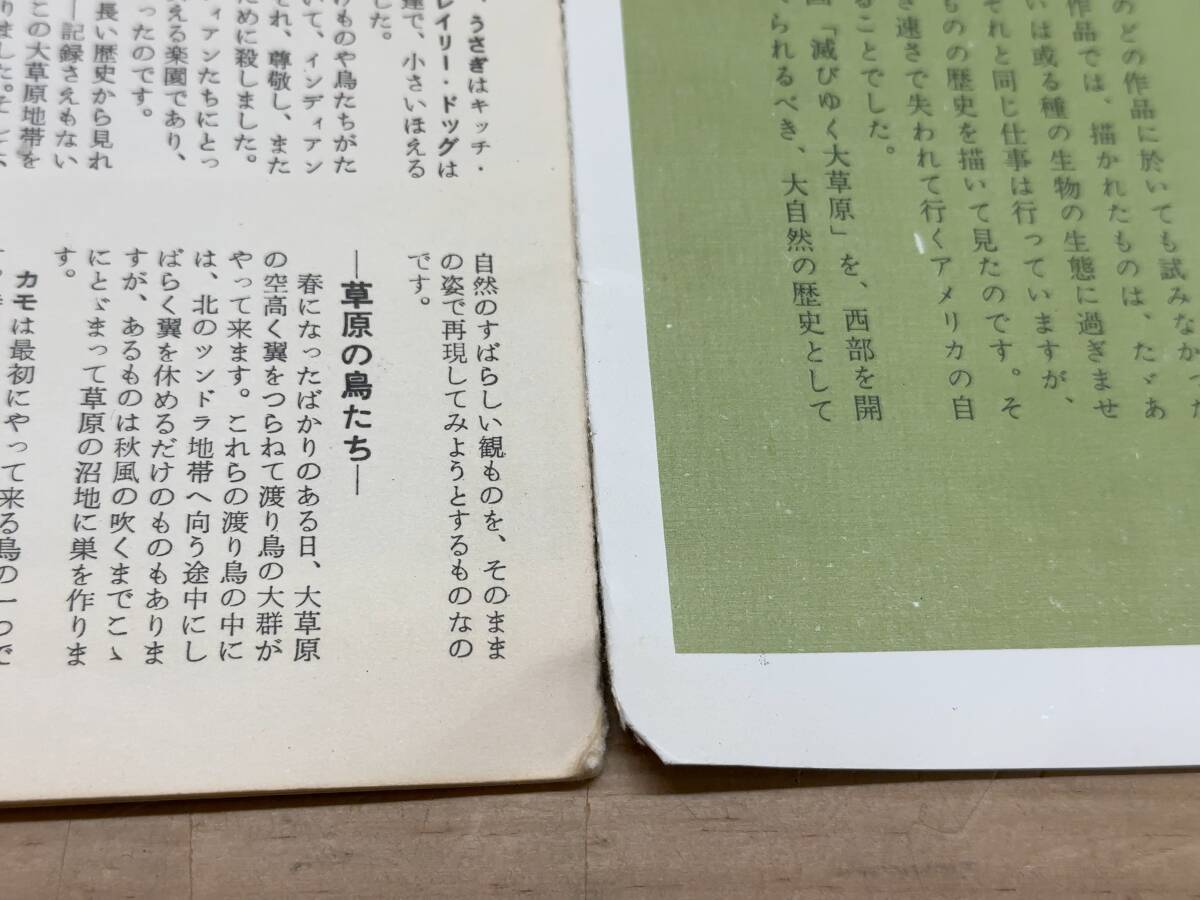 のどの作品に於いても試みなかった
作品では、描かれたものは、たゞあ
いは或る種の生物の生態に過ぎませ
それと同じ仕事は行っていますが、
ものの歴史を描いて見たのです。そ
き速さで失われて行くアメリカの自
ることでした。
「滅びゆく大草原」を、西部を開
られるべき、大自然の歴史として
うさぎはキッチ・
レイリー・ドッグは
達で、小さいほえる
した。
けものや鳥たちがた
いて、インディアン
それ、尊敬し、また
ために殺しました。
ィアンたちにとっ
える楽園であり、
ったのです。
長い歴史から見れ
―記録さえもない
この大草原地帯を
りました。
自然のすばらしい観ものを、そのまま
の姿で再現してみようとするものなの
です。
―草原の鳥たち―
春になったばかりのある日、大草原
の空高く翼をつらねて渡り鳥の大群が
やって来ます。これらの渡り鳥の中に
は、北のツンドラ地帯へ向う途中にし
ばらく翼を休めるだけのものもありま
すが、あるものは秋風の吹くまでこゝ
にとゞまって草原の沼地に巣を作りま
す。
カモは最初にやって来る鳥の一つで